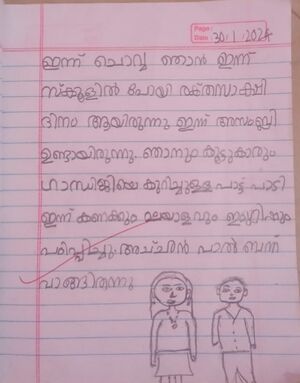 Page:
Date 30/1/2024
ഇന്ന് ചൊവ്വ ഞാൻ ഇന്ന്
സ്ക്കൂളിൽ പോയി രക്തസാക്ഷി
ദിനം ആയിരുന്നു ഇന്ന് അസംബ്ലി
ഉണ്ടായിരുന്നു. ഞാനും കൂട്ടുകാരും
ഗാന്ധിജിയെ കുറിച്ചുള്ള പാട്ട് പാടി
ഇന്ന് കണക്കും മലയാളവും ഇംഗ്ലിഷും
പഠിപ്പിച്ചു. അച്ചൻ പാൽ ബന്ന്
വാങ്ങിതന്നു